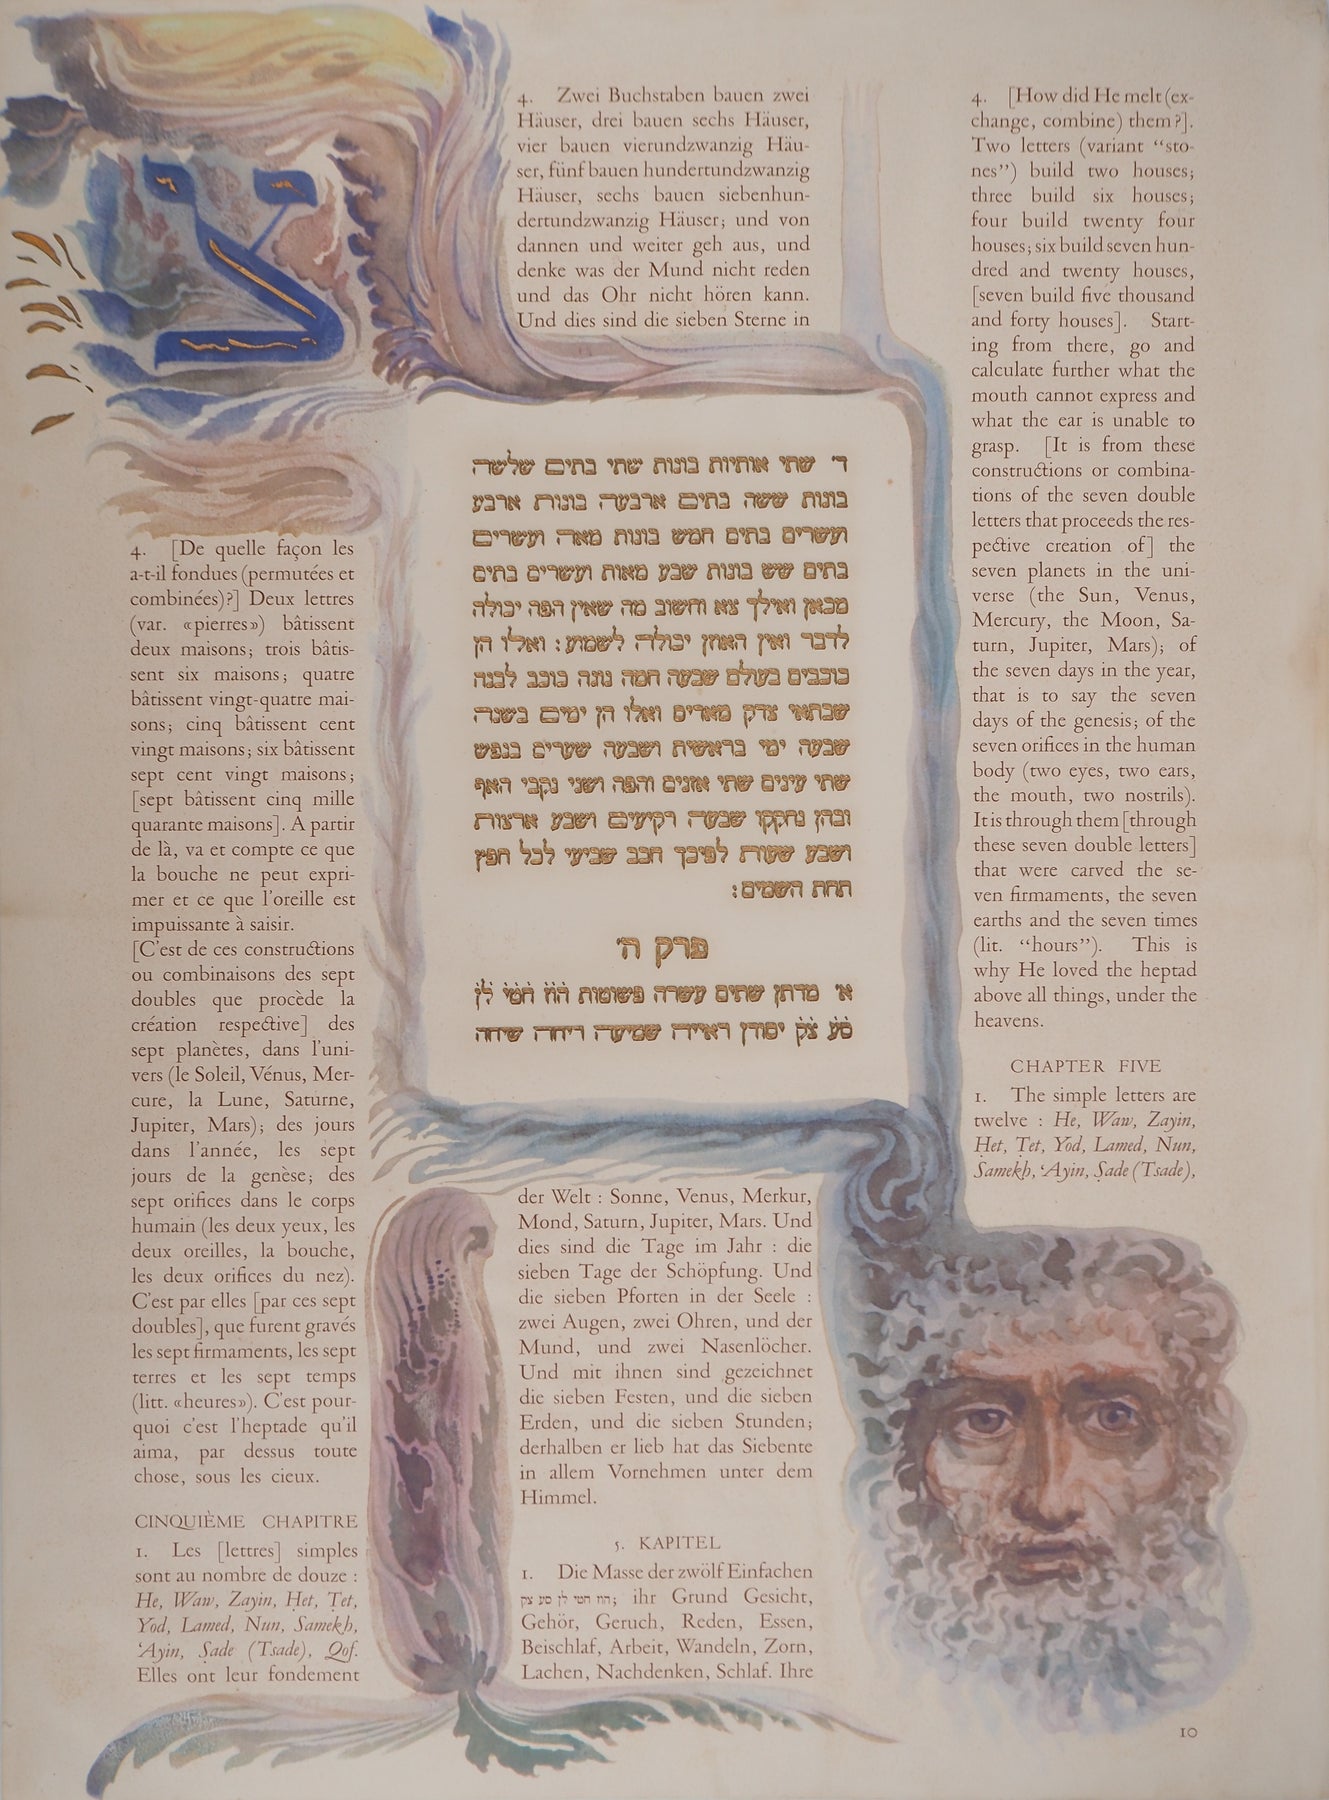 צ
4. Zwei Buchstaben bauen zwei
Häuser, drei bauen sechs Häuser,
vier bauen vierundzwanzig Häu-
ser, fünf bauen hundertundzwanzig
Häuser, sechs bauen siebenhun-
dertundzwanzig Häuser; und von
dannen und weiter geh aus, und
denke was der Mund nicht reden
und das Ohr nicht hören kann.
Und dies sind die sieben Sterne in
der Welt : Sonne, Venus, Merkur,
Mond, Saturn, Jupiter, Mars. Und
dies sind die Tage im Jahr : die
sieben Tage der Schöpfung. Und
die sieben Pforten in der Seele :
zwei Augen, zwei Ohren, und der
Mund, und zwei Nasenlöcher.
Und mit ihnen sind gezeichnet
die sieben Festen, und die sieben
Erden, und die sieben Stunden;
derhalben er lieb hat das Siebente
in allem Vornehmen unter dem
Himmel.
5. KAPITEL
1. Die Masse der zwölf Einfachen
הוז חטי לן סע צק; ihr Grund Gesicht,
Gehör, Geruch, Reden, Essen,
Beischlaf, Arbeit, Wandeln, Zorn,
Lachen, Nachdenken, Schlaf. Ihre
ד׳ שתי אותיות בונות שתי בתים שלשה
בונות ששה בתים ארבעה בונות ארבע
ועשרים בתים חמש בונות מאה ועשרים
בתים שש בונות שבע מאות ועשרים בתים
מכאן ואילך צא וחשוב מה שאין הפה יכולה
לדבר ואין האוזן יכולה לשמוע: ואלו הן
כוכבים בעולם שבעה חמה נוגה כוכב לבנה
שבתאי צדק מאדים ואלו הן ימים בשנה
שבעה ימי בראשית ושבעה שערים בנפש
שתי עינים שתי אזנים והפה ושני נקבי האף
ובהן נחקקו שבעה רקיעים ושבע ארצות
ושבע שעות לפיכך חבב שביעי לכל חפץ
תחת השמים:
פרק ה׳
א׳ מדתן שתים עשרה פשוטות הוז חטי לן
סע צק יסודן ראייה שמיעה ריחה שיחה
4. [De quelle façon les
a-t-il fondues (permutées et
combinées)?] Deux lettres
(var. «pierres») bâtissent
deux maisons; trois bâtis-
sent six maisons; quatre
bâtissent vingt-quatre mai-
sons; cinq bâtissent cent
vingt maisons; six bâtissent
sept cent vingt maisons;
[sept bâtissent cinq mille
quarante maisons]. A partir
de là, va et compte ce que
la bouche ne peut expri-
mer et ce que l'oreille est
impuissante à saisir.
[C'est de ces constructions
ou combinaisons des sept
doubles que procède la
création respective] des
sept planètes, dans l'uni-
vers (le Soleil, Vénus, Mer-
cure, la Lune, Saturne,
Jupiter, Mars); des jours
dans l'année, les sept
jours de la genèse; des
sept orifices dans le corps
humain (les deux yeux, les
deux oreilles, la bouche,
les deux orifices du nez).
C'est par elles [par ces sept
doubles], que furent gravés
les sept firmaments, les sept
terres et les sept temps
(litt. «heures»). C'est pour-
quoi c'est l'heptade qu'il
aima, par dessus toute
chose, sous les cieux.
CINQUIÈME CHAPITRE
1. Les [lettres] simples
sont au nombre de douze :
He, Waw, Zayin, Ḥet, Ṭet,
Yod, Lamed, Nun, Samekh,
‘Ayin, Ṣade (Tsade), Qof.
Elles ont leur fondement
4. [How did He melt (ex-
change, combine) them?].
Two letters (variant “sto-
nes”) build two houses;
three build six houses;
four build twenty four
houses; six build seven hun-
dred and twenty houses,
[seven build five thousand
and forty houses]. Start-
ing from there, go and
calculate further what the
mouth cannot express and
what the ear is unable to
grasp. [It is from these
constructions or combina-
tions of the seven double
letters that proceeds the res-
pective creation of] the
seven planets in the uni-
verse (the Sun, Venus,
Mercury, the Moon, Sa-
turn, Jupiter, Mars); of
the seven days in the year,
that is to say the seven
days of the genesis; of the
seven orifices in the human
body (two eyes, two ears,
the mouth, two nostrils).
It is through them [through
these seven double letters]
that were carved the se-
ven firmaments, the seven
earths and the seven times
(lit. “hours”). This is
why He loved the heptad
above all things, under the
heavens.
CHAPTER FIVE
1. The simple letters are
twelve : He, Waw, Zayin,
Ḥet, Ṭet, Yod, Lamed, Nun,
Samekh, ‘Ayin, Ṣade (Tsade),
10